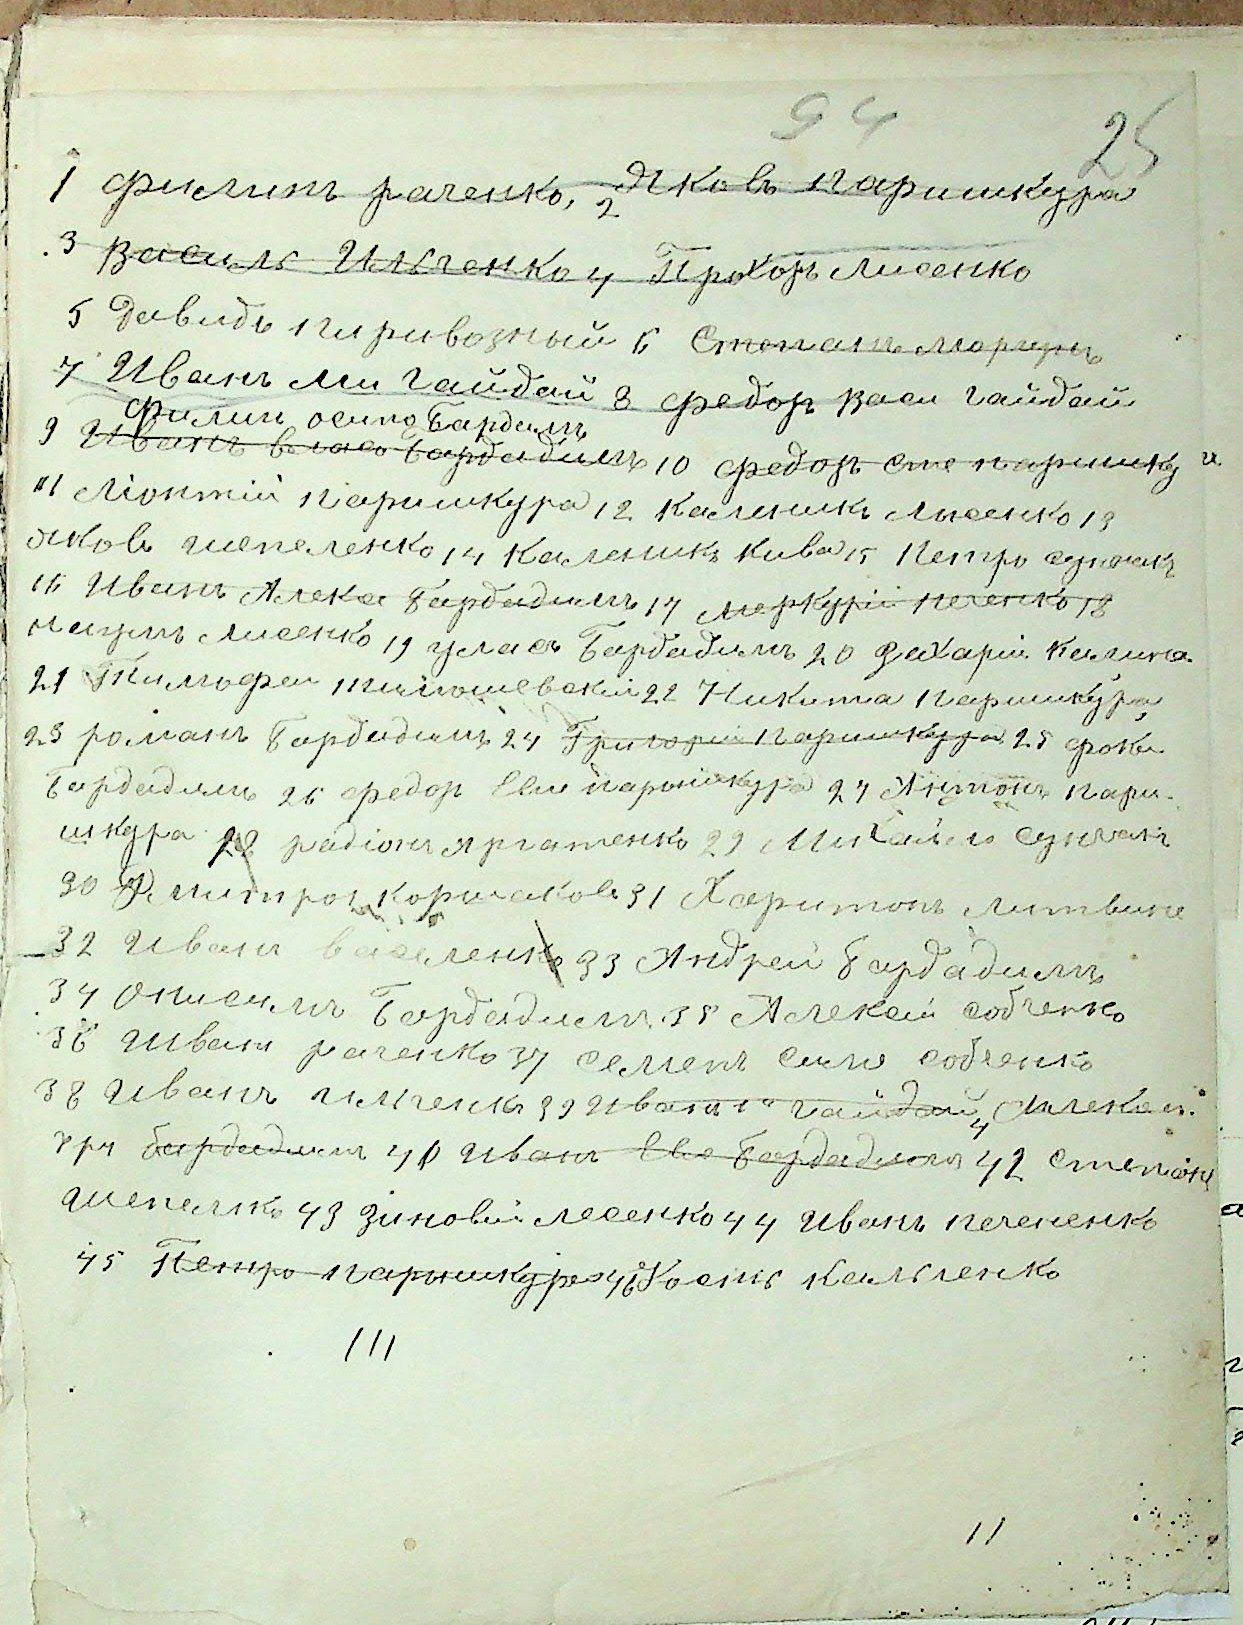 94 25
1 Филипъ раченко, 2 Яковъ паришкура
3 Василь Ильченко 4 Прохоръ Лисенко
5 Давидъ пиривозный 6 Степанъ моргунъ
7 Иванъ Ми Гайдай 8 Федоръ Васи Гайдай
Филип осипо Бардим
9 Иванъ Власо Бардадимъ 10 Федоръ Сте паришку
11 Ліонтій паришкура 12 Каленикъ Лысенко 13
Яковъ шепеленко 14 Каленикъ Кива 15 Петро
16 Иванъ Алекс Бардадимъ 17 Меркурій печенко 18
Наумъ Лисенко 19 уласъ Бардадимъ 20 Захарій Калина
21 Тимофей 22 Никита паришкура
23 романъ Бардадимъ 24 Григорій паришкура 25 фока
Бардадимъ 26 федор Евм паришкура 27 Антонъ пари
шкура 28 радіонъ 29 Михайло
30 Дмитро Коршаковъ 31 Харитонъ Литвине
32 Иванъ Василенко 33 Андрей Бардадимъ
34 Онисимъ Бардадимъ 35 Алексій собченко
36 Иванъ раченко 37 семенъ собченко
38 Иванъ Ильченко 39 Иванъ Гайдай 4 Алексѣй
гри бардадим 41 Иванъ Евс Бардадимъ 42 степанъ
43 Зіновій лесенко 44 Иванъ печененко
45 Петро паришкура 46 Кальченко
111
11